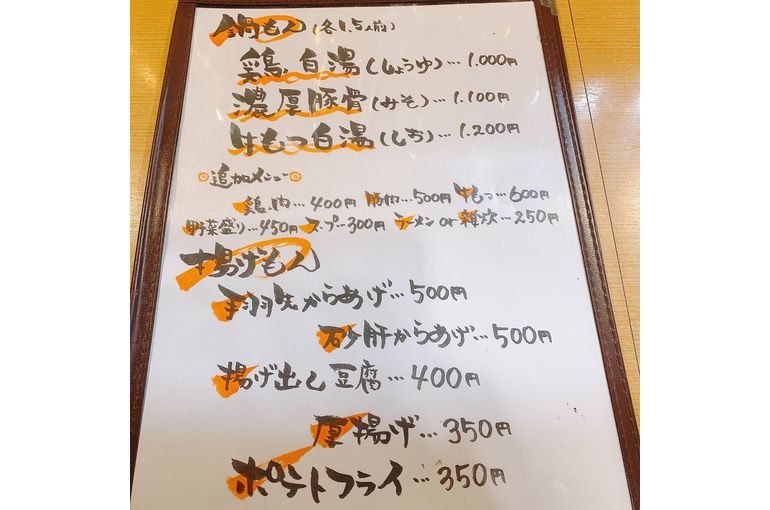 鍋もん(各1.5人前)
鶏白湯(しょうゆ)…1.000円
濃厚豚骨(みそ)…1.100円
牛もつ白湯(しお)…1.200円
◎追加メニュー◎
鶏肉…400円 豚肉…500円 牛もつ…600円
野菜盛り…450円 スープ…300円 ラーメンor雑炊…250円
揚げもん
手羽先からあげ…500円
砂肝からあげ…500円
揚げ出し豆腐…400円
厚揚げ…350円
ポテトフライ…350円